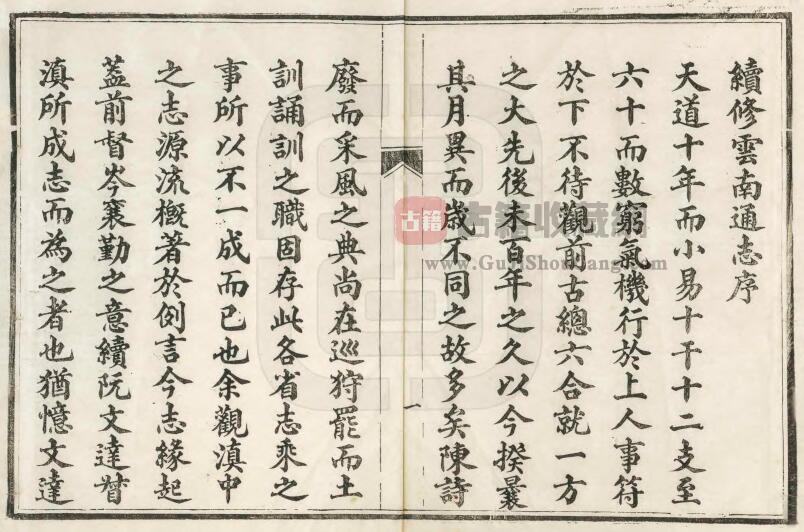 續修雲南通志序
天道十年而小易十干十二支至
六十而數窮氣機行於上人事符
於下不待觀前古總六合就一方
之大先後未百年之久以今揆曩
其月異而歲不同之故多矣陳詩
一
廢而采風之典尚在巡狩罷而土
訓誦訓之職固存此各省志乘之
事所以不一成而已也余觀滇中
之志源流概著於例言今志緣起
葢前督岑襄勤之意續阮文達督
滇所成志而為之者也猶憶文達
古籍 古籍收藏網
www.GuJiShouCang.com